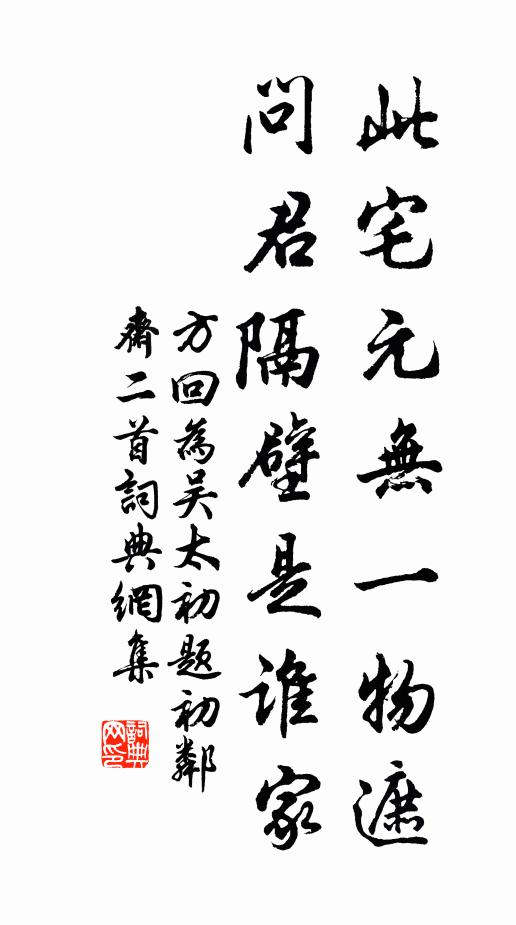 此宅元無一物遮
問君隔壁是谁家
方回為吴太初题初鄰
齋二首詞典網集
詞典网印